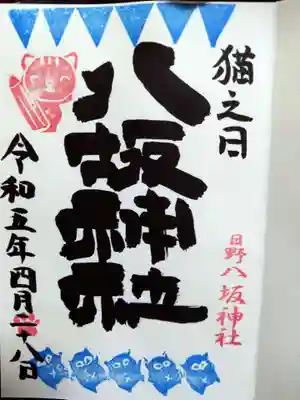 猫之日
日野八坂神社
八坂神社
令和五年四月二十八日